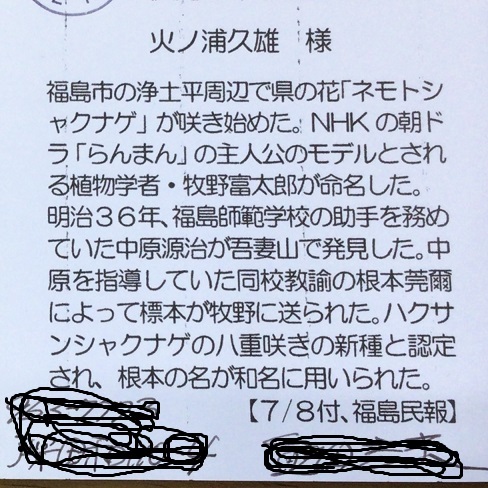 火ノ浦久雄 様
福島市の浄土平周辺で県の花「ネモトシ
ャクナゲ」が咲き始めた。NHKの朝ド
ラ「らんまん」の主人公のモデルとされ
る植物学者・牧野富太郎が命名した。
明治36年、福島師範学校の助手を務め
ていた中原源治が吾妻山で発見した。中
原を指導していた同校教諭の根本莞爾
によって標本が牧野に送られた。ハクサ
ンシャクナゲの八重咲きの新種と認定
され、根本の名が和名に用いられた。
【7/8付、福島民報】